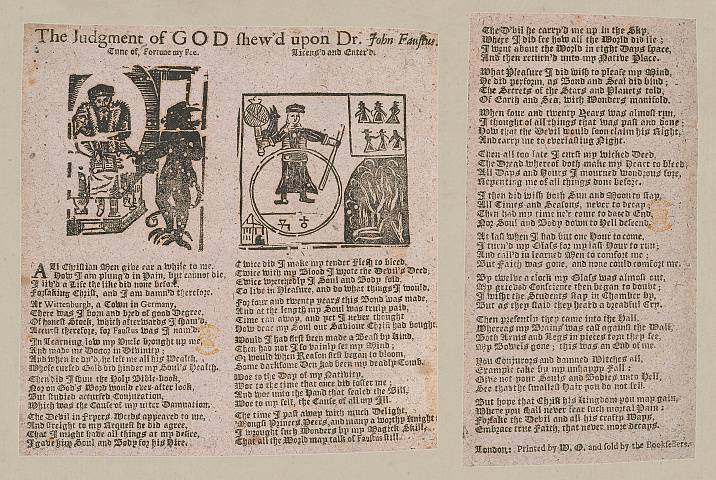 The Judgment of GOD shew'd upon Dr. John Faustus.
Tune of, Fortune my Foe.
Licens'd and Enter'd.
ALl Christian Men give ear a while to me,
How I am plung'd in Pain, but cannot die,
I liv'd a Life the like did none before,
Forsaking Christ, and I am damn'd therefore.
At Wittenburgh, a Town in Germany,
There was I born and bred of good Degree,
Of honest Stock, which afterwards I sham'd,
Accurst therefore, for Faustus was I nam'd.
In Learning low my Uncle brought up me,
And made me Doctor in Divinity;
And when he dy'd, he left me all his Wealth,
Whose cursed Gold did hinder my Soul's Health.
Then did I shun the Holy Bible-book,
Nor on God's Word would ever after look,
But studied accursed Conjuration,
Which was the Cause of my utter Damnation.
The Devil in Fryers Weeds appeared to me,
And streight to my Request he did agree,
That I might have all things at my desire,
I gave him Soul and Body for his Hire.
Twice did I make my tender Flesh to bleed,
Twice with my Blood I wrote the Devil's Deed;
Twice wretchedly I Soul and Body sold,
To live in Pleasure and do what things I would.
For four and twenty years this Bond was made,
And at the length my Soul was truly paid,
Time ran away, and yet I never thought
How dear my Soul our Saviour Christ had bought.
Would I had first been made a Beast by Kind,
Then had not I so vainly set my Mind;
Or would when Reason first began to bloom,
Some darksome Den had been my deadly Tomb.
Woe to the Day of my Nativity,
Woe to the time that once did foster me;
And woe unto the Hand that sealed the Bill,
Woe to my self, the Cause of all my Ill.
The time I past away with much Delight,
'Mongst Princes, Peers, and many a worthy Knight:
I wrought such Wonders by my Magick Skill,
That all the World may talk of Faustus still.
The Devil he carry'd me up in the Sky,
Where I did see how all the World did lie;
I went about the World in eight Days space,
And then return'd unto my Native Place.
What Pleasure I did wish to please my Mind,
He did perform, as Bond and Seal did bind;
The Secrets of the Stars and Planets told,
Of Earth and Sea, with Wonders manifold.
When four and twenty Years was almost run,
I thought of all things that was past and done;
How that the Devil would soon claim his Right,
And carry me to everlasting Night.
Then all too late I curst my wicked Deed,
The Dread whereof doth make my Heart to bleed;
All Days and Hours I mourned wondrous sore,
Repenting me of all things done before.
I then did wish both Sun and Moon to stay,
All Times and Seasons, never to decay;
Then had my time ne'r come to dated End,
Nor Soul and Body down to Hell descend.
At last when I had but one Hour to come,
I turn'd my Glass for my last Hour to run;
And call'd in learned Men to comfort me;
But Faith was gone, and none could comfort me.
By twelve a clock my Glass was almost out,
My grieved Conscience then began to doubt;
I wisht the Students stay in Chamber by,
But as they staid they heard a dreadful Cry.
Then presently they came into the Hall,
Whereas my Brains was cast against the Wall;
Both Arms and Legs in pieces torn they see,
My Bowels gone; this was an End of me.
You Conjurors and damned Witches all,
Example take by my unhappy Fall:
Give not your Souls and Bodies unto Hell,
See that the smallest Hair you do not sell.
But hope that Christ his Kingdom you may gain,
Where you shall never fear such mortal Pain:
Forsake the Devil and all his crafty Ways,
Embrace true Faith, that never more decays.
London: Printed by W. O. and sold by the Booksellers.